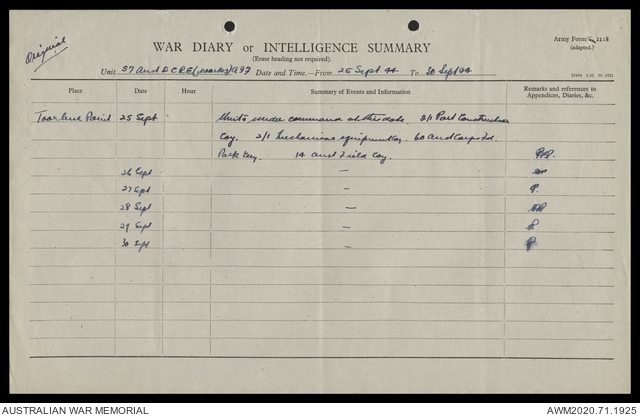 Original
Army Form C. 2118
(adapted.)
WAR DIARY or INTELLIGENCE SUMMARY
(Erase heading not required).
Unit 57 Aust D.C.R.E. (Works) Date and Time.—From 25 Sept 44 To 30 Sept 44
Place Date Hour Summary of Events and Information Remarks and references to Appendices, Diaries, &c.
Point 25 Sept Units under command at this date. 2/1 Port Construction
Coy. 2/1 Mechanical equipment Coy. 60 Aust Corps Fd.
Park Coy. 14 Aust Field Coy.
26 Sept —
27 Sept —
28 Sept —
29 Sept —
30 Sept —
AUSTRALIAN WAR MEMORIAL
AWM2020.71.1925